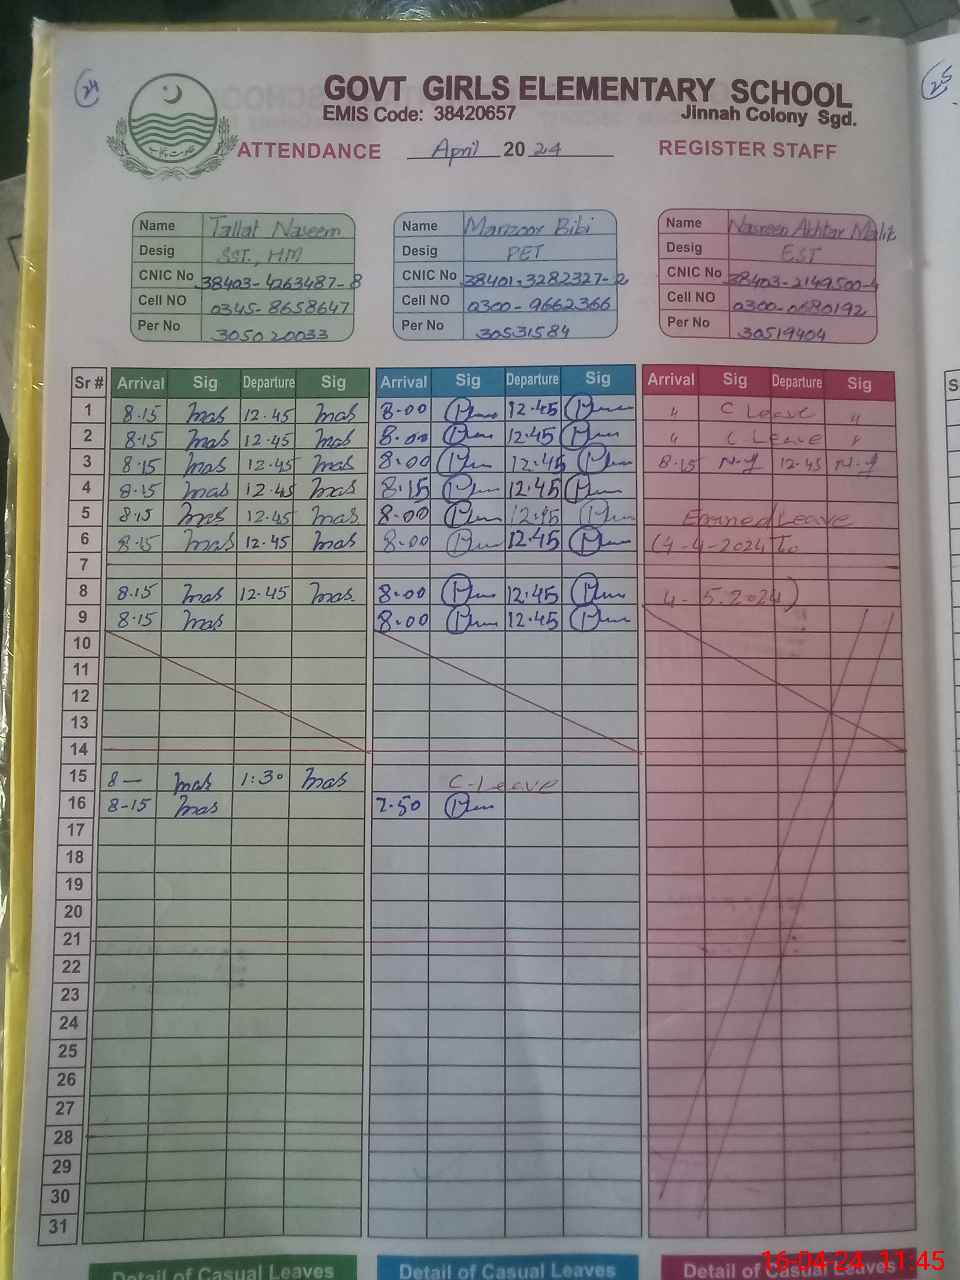 24
25
GOVT GIRLS ELEMENTARY SCHOOL
EMIS Code: 38420657 Jinnah Colony Sgd.
ATTENDANCE April 2024 REGISTER STAFF
Name Tallat Naseem Name Manzoor Bibi Name Nasreen Akhtar Malik
Desig SST., HM Desig PET Desig EST
CNIC No 38403-4263487-8 CNIC No 38401-3282327-2 CNIC No 38403-2149500-4
Cell NO 0345-8658647 Cell NO 0300-9662366 Cell NO 0300-0680192
Per No 30502 0033 Per No 30531584 Per No 30519404
Sr # Arrival Sig Departure Sig Arrival Sig Departure Sig Arrival Sig Departure Sig
1 8.15 12.45 8.00 12.45 " C Leave "
2 8.15 12.45 8.00 12.45 " C Leave "
3 8.15 12.45 8.00 12.45 8.15 12.45
4 8.15 12.45 8.15 12.45
5 8.15 12.45 8.00 12.45 Earned Leave
6 8.15 12.45 8.00 12.45 (4-4-2024 To
7
8 8.15 12.45 8.00 12.45 4-5.2024)
9 8.15 8.00 12.45
10
11
12
13
14
15 8- 1:30 C-Leave
16 8-15 7.50
17
18
19
20
21
22
23
24
25
26
27
28
29
30
31
Detail of Casual Leaves Detail of Casual Leaves Detail of Casual Leaves
16-04-24 11:45